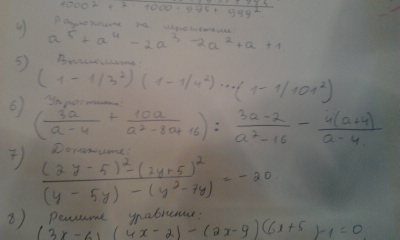 1000² + ² 1000 · 994 + 994²
4) Разложите на множители:
a⁵ + a⁴ - 2a³ - 2a² + a + 1
5) Вычислите:
(1 - 1/3²) (1 - 1/4²) ... (1 - 1/101²)
6) Упростите:
(3a/a-4 + 10a/a²-8a+16) : 3a-2/a²-16 - 4(a+4)/a-4
7) Докажите:
(2y-5)² - (2y+5)²/(y-5y) - (y²-7y) = -20
8) Решите уравнение:
(3x-6)(4x-2) - (2x-9)(6x+5)-1=0